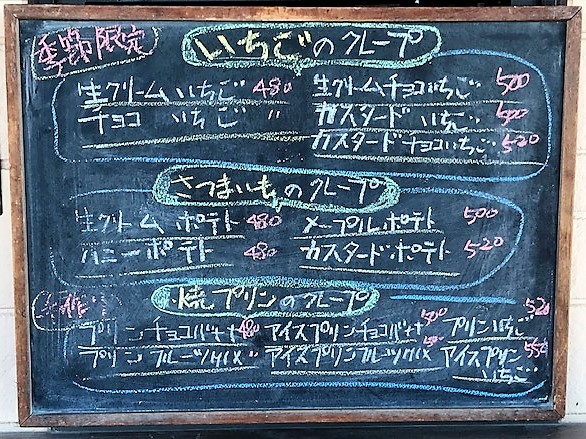 季節限定
いちごのクレープ
生クリームいちご 480 生クリームチョコいちご 500
チョコ いちご 〃 カスタード いちご 500
カスタードチョコいちご 520
さつまいものクレープ
生クリーム ポテト 480 メープルポテト 500
ハニーポテト 480 カスタードポテト 520
焼プリンのクレープ
プリンチョコバナナ 480 アイスプリンチョコバナナ 500 プリンいちご 520
プリン フルーツMIX 〃 アイスプリンフルーツMIX アイスプリン 550
いちご